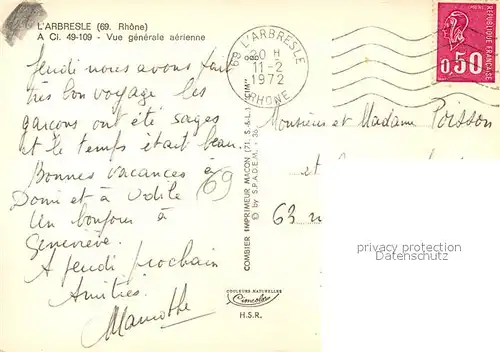 L'ARBRESLE (69. Rhône)
A Ci. 49-109 - Vue générale aérienne
69 L'ARBRESLE
20 H
11-2
1972
RHONE
REPUBLIQUE FRANCAISE
0,50
Jeudi nous avons fait
très bon voyage les
garçons ont été sages
et le temps était beau.
Bonnes vacances à
Domi et à Odile (69
Un bonjour à
Geneviève.
A jeudi prochain
Amitiés.
COMBIER IMPRIMEUR MACON (71. S.-&-L.) "CIM"
© by S.P.A.D.E.M. - 36
Monsieur et Madame Poisson
et
63
privacy protection
Datenschutz
COULEURS NATURELLES
Cimcolor
H.S.R.